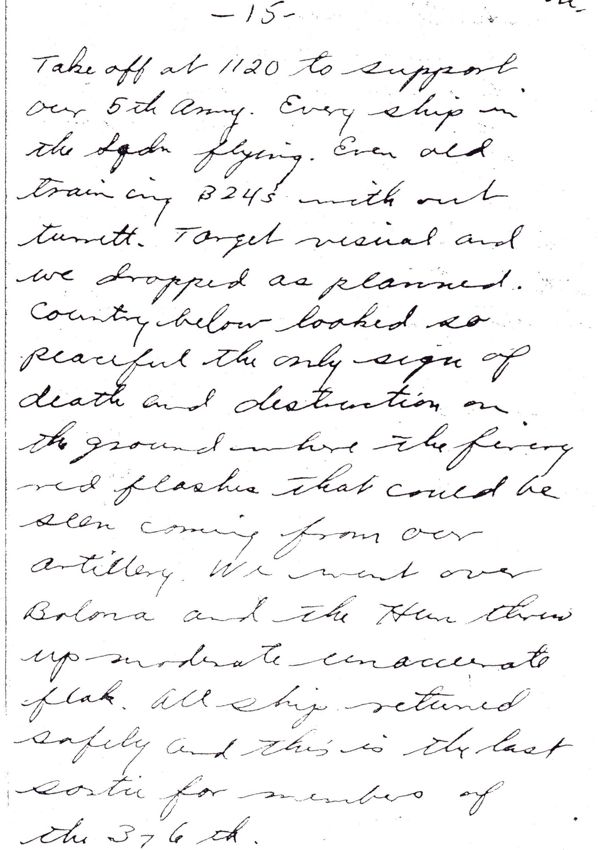 -15-
Take off at 1120 to support
our 5th Army. Every ship in
the Sqdn flying. Even old
training B24s with out
turrett. Target visual and
we dropped as planned.
Country below looked so
peaceful the only sign of
death and destruction on
the ground where the firery
red flashes that could be
seen coming from our
artillery. We went over
Bolona and the Hun threw
up moderate unaccurate
flak. All ship returned
safely and this is the last
sortie for members of
the 376th.